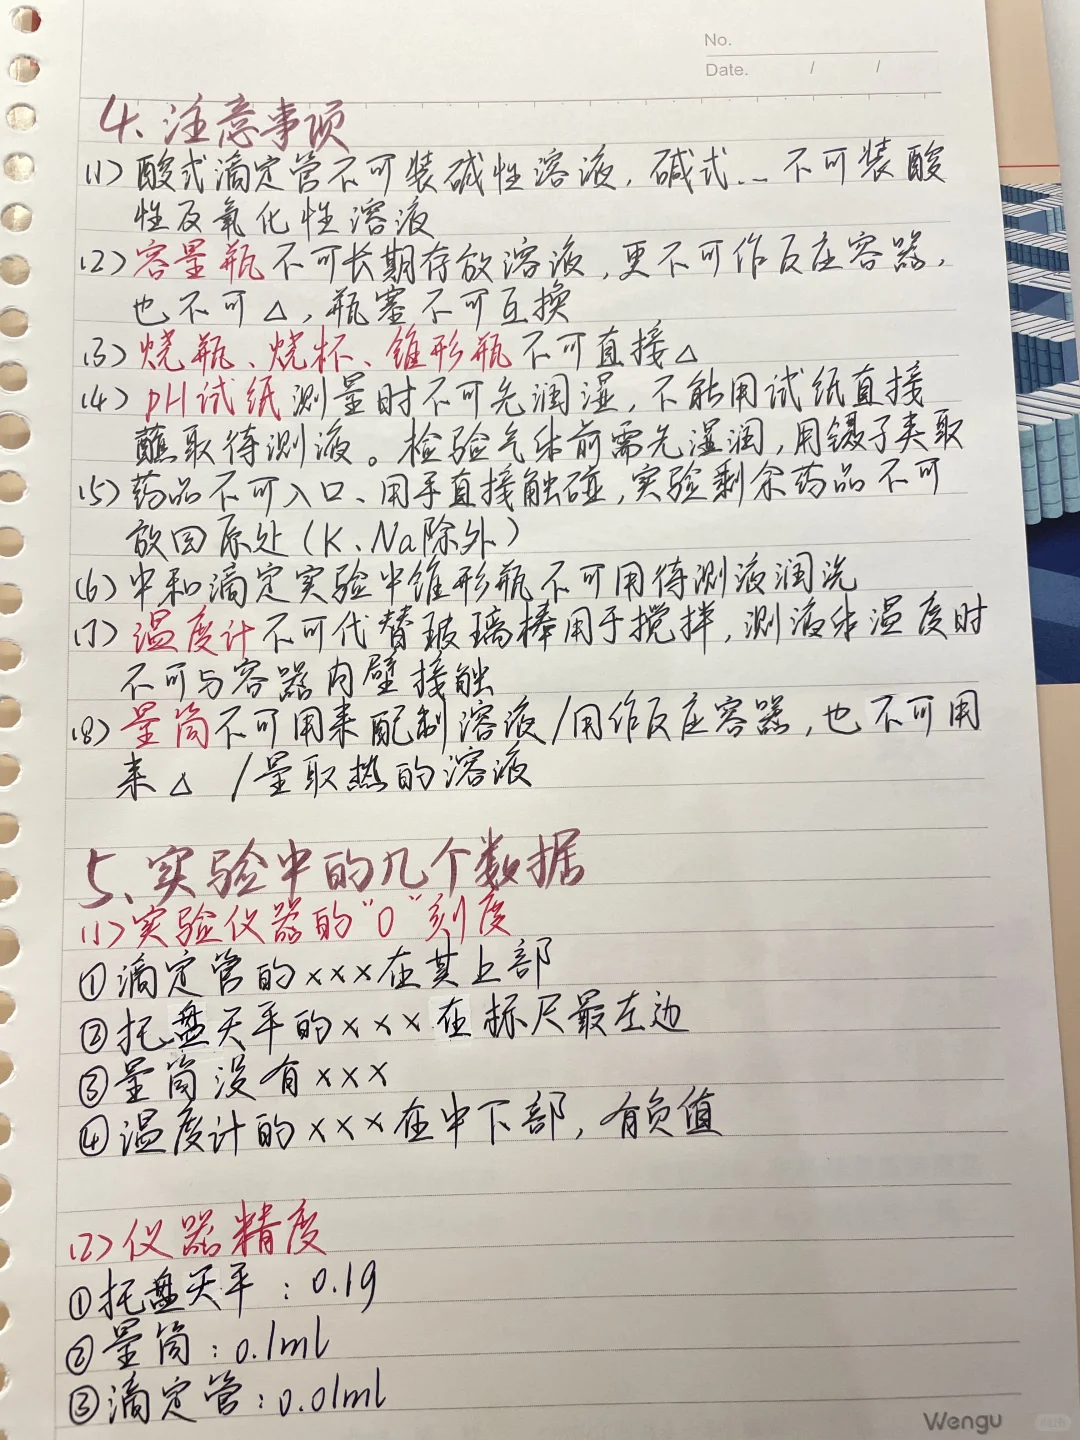 No.
Date. / /
4、注意事项
(1) 酸式滴定管不可装碱性溶液，碱式... 不可装酸
性及氧化性溶液
(2) 容量瓶不可长期存放溶液，更不可作反应容器，
也不可△，瓶塞不可互换
(3) 烧瓶、烧杯、锥形瓶不可直接△
(4) pH试纸测量时不可先润湿，不能用试纸直接
蘸取待测液。检验气体前需先湿润，用镊子夹取
(5) 药品不可入口、用手直接触碰，实验剩余药品不可
放回原处（K、Na除外）
(6) 中和滴定实验中锥形瓶不可用待测液润洗
(7) 温度计不可代替玻璃棒用于搅拌，测液体温度时
不可与容器内壁接触
(8) 量筒不可用来配制溶液/用作反应容器，也不可用
来△ /量取热的溶液
5、实验中的几个数据
(1) 实验仪器的“0”刻度
①滴定管的×××在其上部
②托盘天平的×××在标尺最左边
③量筒没有×××
④温度计的×××在中下部，有负值
(2) 仪器精度
①托盘天平：0.1g
②量筒：0.1ml
③滴定管：0.01ml
Wengu